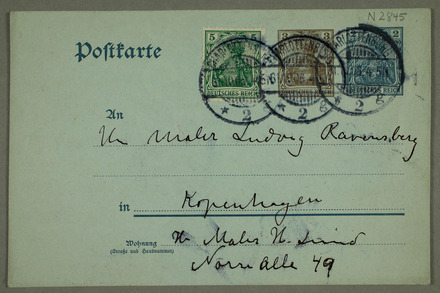 N 2845
Postkarte
5 5
3 3
2
DEUTSCHES REICH
DEUTSCHES REICH
CHARLOTTENBURG
* 2 g
An
Maler Ludvig Ravensberg
in Kopenhagen
Wohnung
(Straße und Hausnummer)
Maler H. Lund
Norre Alle 49